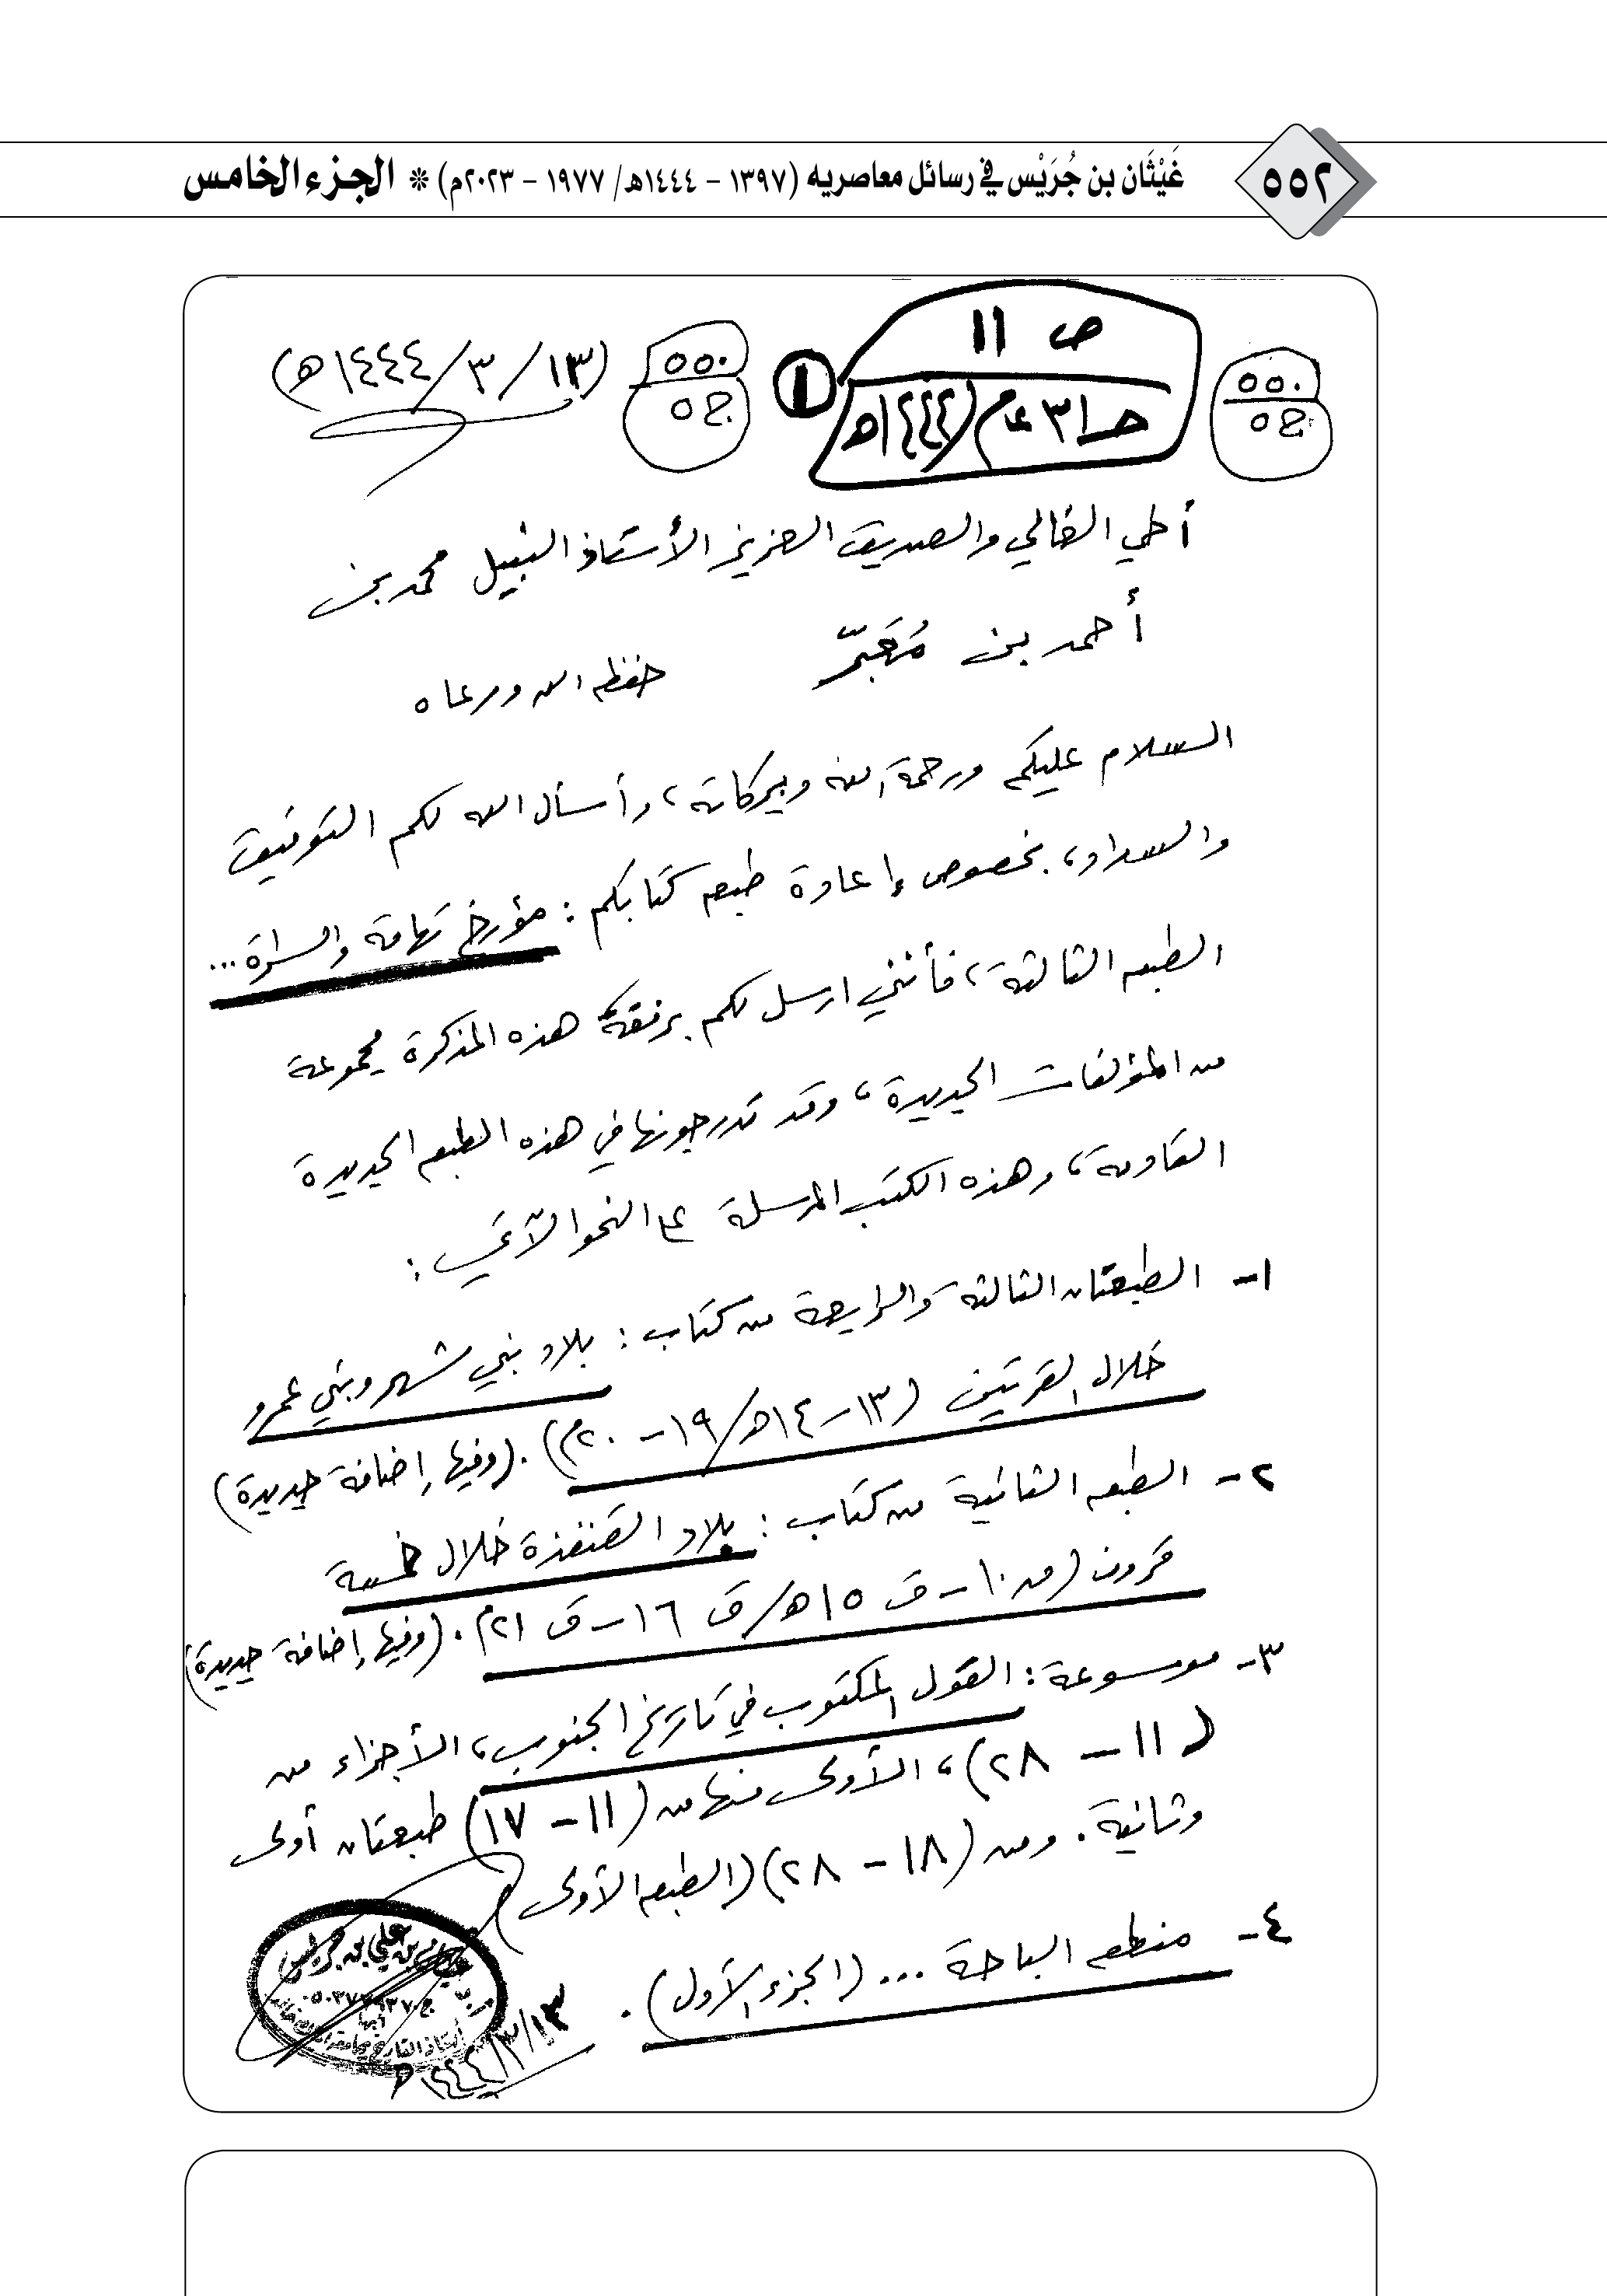 ٥٥٢
غَيْثَان بن جُرَيْس في رسائل معاصريه (١٣٩٧ - ١٤٤٤هـ/ ١٩٧٧ - ٢٠٢٣م) * الجزء الخامس
٥٥٠
ج٥
ص ١١
١٤٤٤هـ
١
٥٥٠
ج٥
(١٣/٣/١٤٤٤هـ)
أخي الغالي والصديق العزيز الأستاذ النبيل محمد بن
أحمد بن مُعَبِّر حفظه الله ورعاه
السلام عليكم ورحمة الله وبركاته، وأسأل الله لكم التوفيق
والسداد، بخصوص إعادة طبع كتابكم : مؤرخ تهامة والسراة...
الطبعه الثالثة، فأنني ارسل لكم برفقة هذه المذكرة مجموعة
من المؤلفات الجديدة، وقد تدرجونها في هذه الطبعه الجديدة
القادمة، وهذه الكتب المرسلة على النحو الآتي :
١- الطبعتان الثالثة والرابعة من كتاب : بلاد بني شهر وبني عمرو
خلال القرنين (١٣-١٤هـ/١٩-٢٠م) . (وفيها إضافة جديدة)
٢- الطبعه الثانية من كتاب : بلاد القنفذة خلال خمسة
قرون (ق١٠-ق ١٥هـ/ق ١٦-ق ٢١م) . (وفيها إضافة جديدة)
٣- موسوعة : القول المكتوب في تاريخ الجنوب، الأجزاء من
(١١-٢٨)، الأولى منها من (١١-١٧) طبعتان أولى
وثانية. ومن (١٨-٢٨) (الطبعه الأولى)
٤- منطقه الباحة ... (الجزء الأول) .
١٣/٣/١٤٤٤هـ